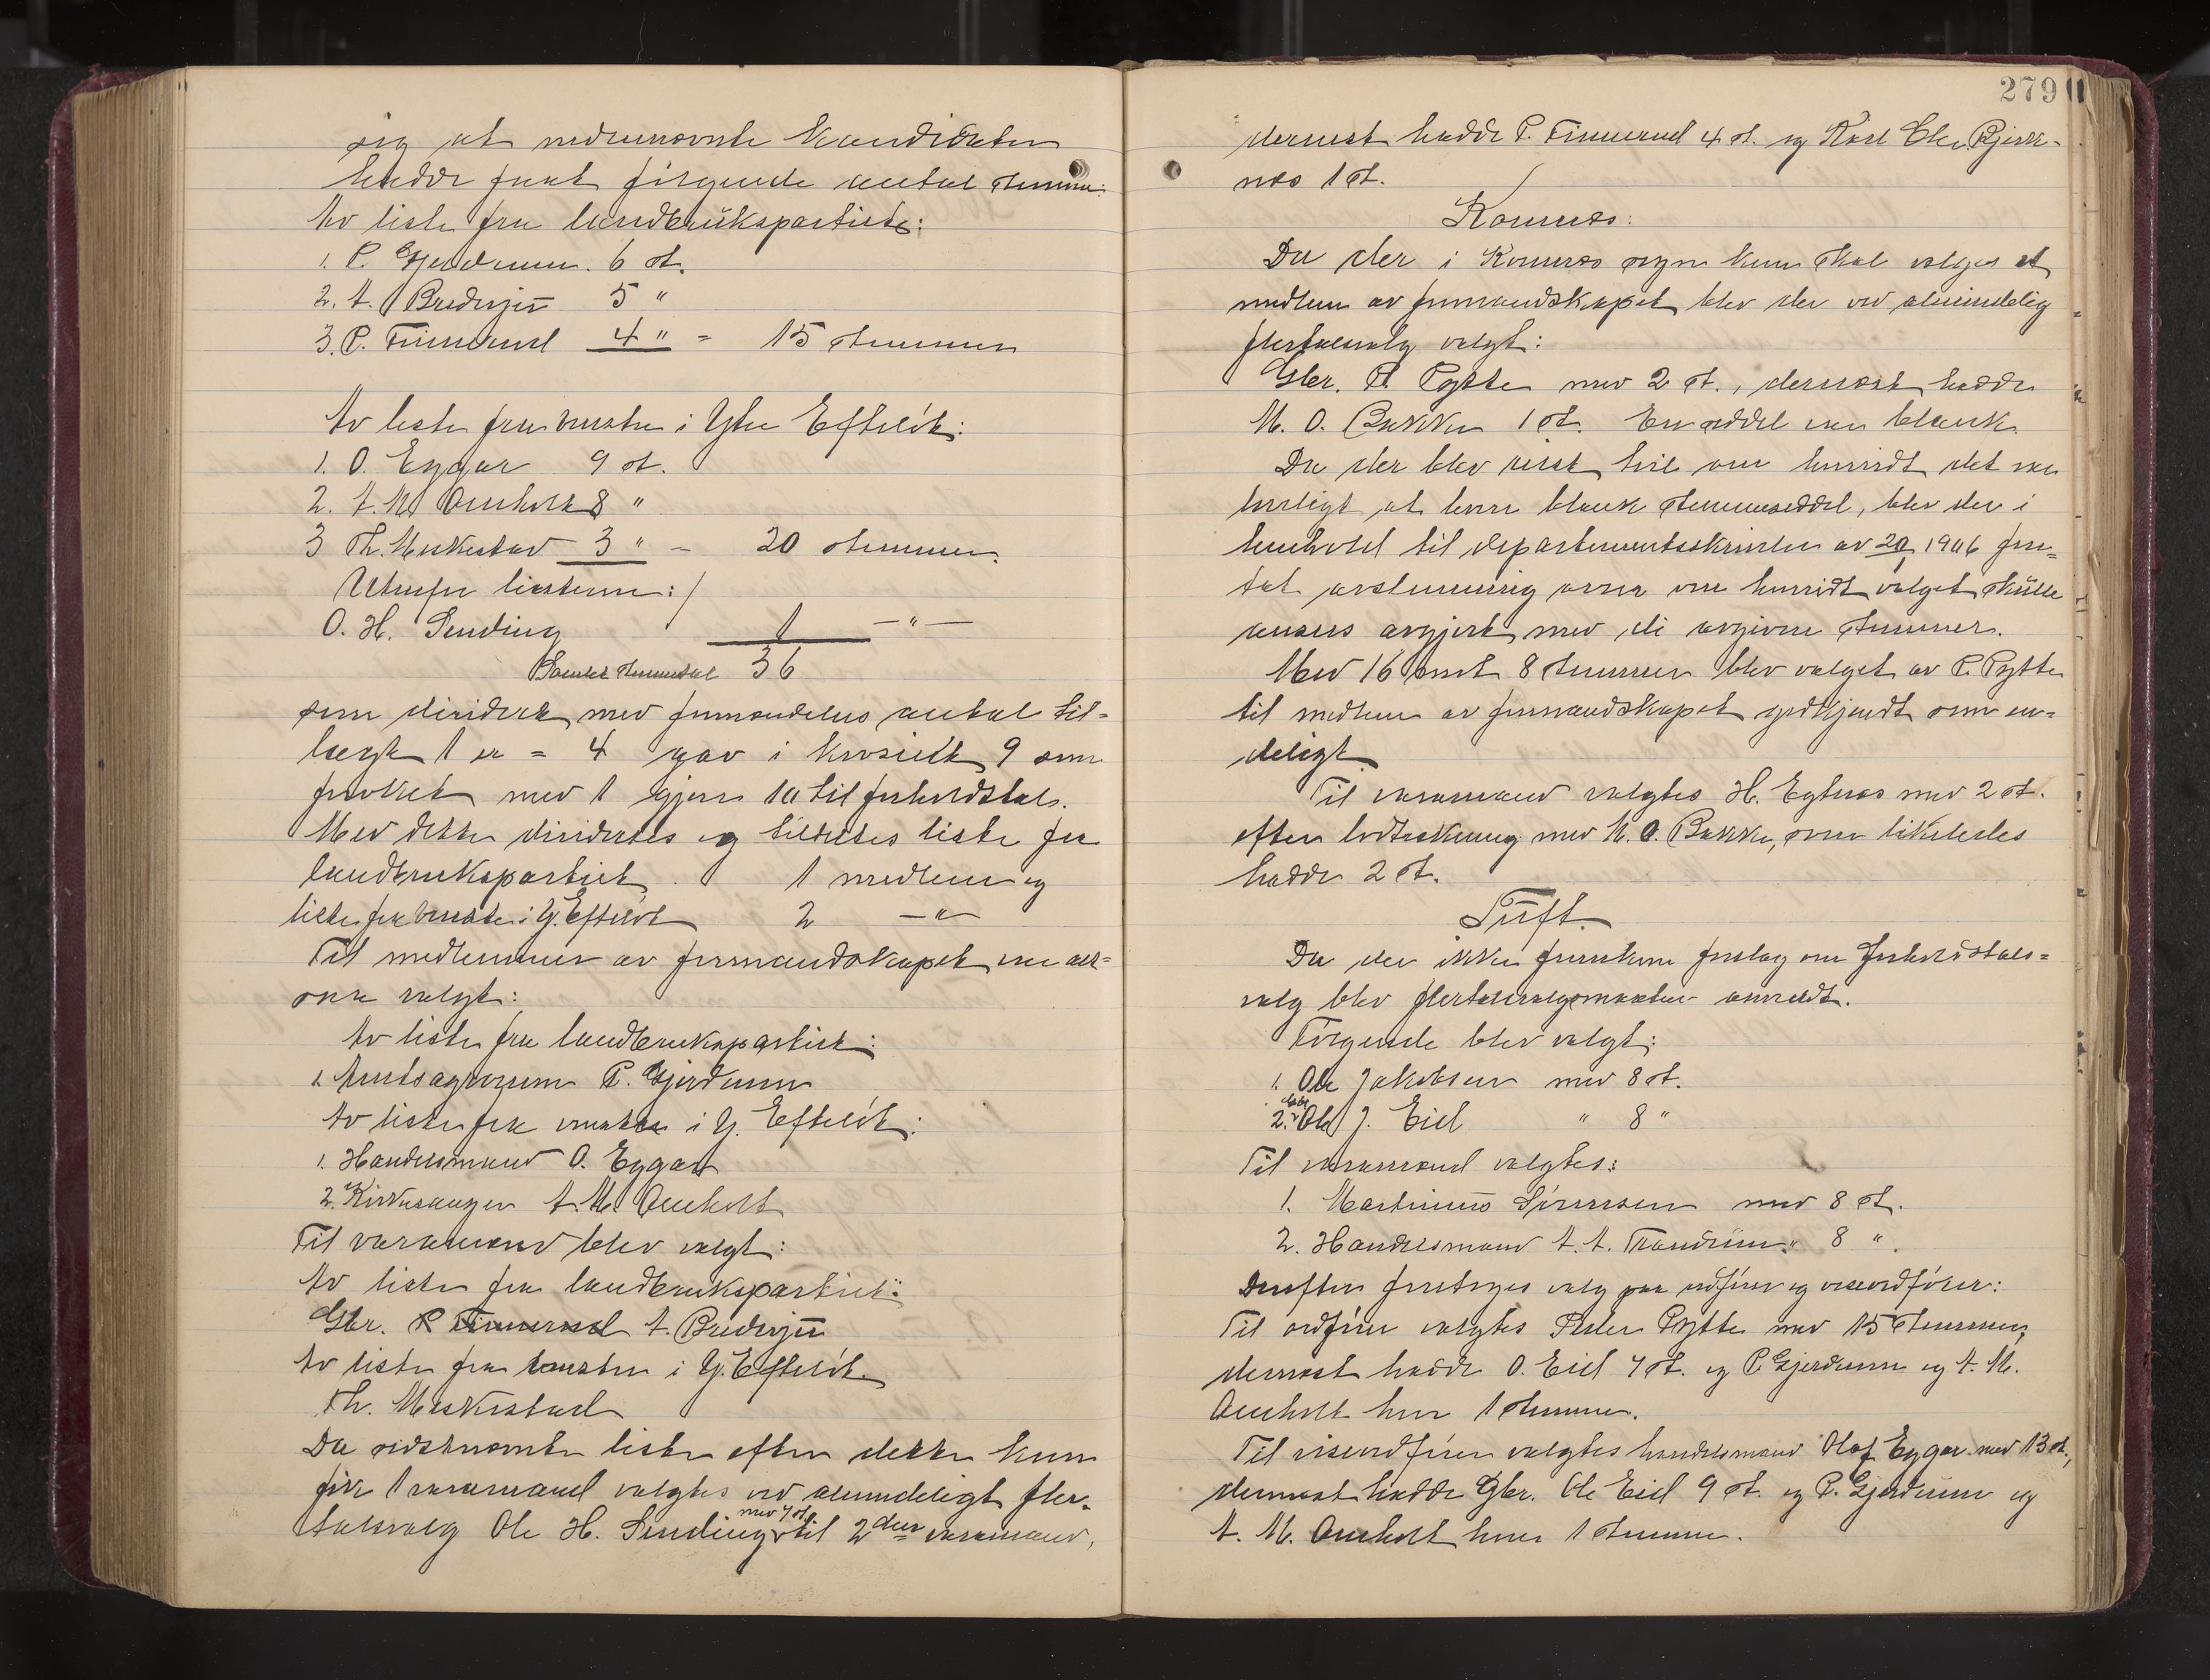 sig at nedennævnte kandidater
hadde faat følgende antal stemmer:
Av liste fra landbrukspartiet:
1. P. Gjerdrum. 6 st.
2. A. Bredesen 5 "
3. P. Finnerud 4 " = 15 stemmer
Av liste fra venstre i Ytre Efteløt:
1. O. Eggar 9 st.
2. A. M. Omholt 8 "
3 Th. Muskestad 3 " = 20 stemmer.
Utenfor listerne:
O. H. Sending 1 — " —
Samlet stemmetal 36
som divideret med formændenes antal til-
lagt 1 er = 4 gav i kvosient 9 som
forøket med 1 gjøres 10 til forholdstal.
Med dette divideres og tildeltes liste fra
landbrukspartiet 1 medlem og
liste fra venstre i Y. Efteløt 2 — " —
Til medlemmer av formandskapet var alt-
saa valgt:
Av liste fra landbrukspartiet:
1. Amtsagronom P. Gjerdrum
Av liste fra venstre i Y. Efteløt:
1. Handelsmand O. Eggar
2. Kirkesanger A. M. Omholt
Til varamænd blev valgt:
Av liste fra landbrukspartiet:
Gbr. P Finnerud A. Bredesen
Av liste fra venstre i Y. Efteløt.
Th. Muskestad
Da sidstnævnte liste efter dette kun
fik 1 varamand valgtes ved almindeligt fler-
talsvalg Ole H. Sending med 7 st. til 2den varamand,
279
dernæst hadde P. Finnerud 4 st. og Karl Chr. Bjerk-
næs 1 st.
Komnæs:
Da der i Komnæs sogn kun skal velges et
medlem av formandskapet blev der ved almindelig
flertalsvalg valgt:
Gbr. P. Pytte med 2 st., dernæst hadde
M. O. Bakken 1 st. En seddel var blank.
Da der blev reist tvil om hvorvidt det var
lovligt at levere blank stemmeseddel, blev der i
henhold til departementsskrivelse av 20/1 1906 fore-
tat avstemning over om hvorvidt valget skulle
ansees avgjort med de avgivne stemmer.
Med 16 mot 8 stemmer blev valget av P. Pytte
til medlem av formandskapet godkjendt som en-
deligt
Til varamand valgtes H. Egtnæs med 2 st.
efter lodtrekning med M. O. Bakke, som likeledes
hadde 2 st.
Tuft.
Da der ikke fremkom forslag om forholdstals-
valg blev flertalsvalgsmaaten anvendt.
Følgende blev valgt:
1. Ole Jakobsen med 8 st.
2. Gbr Ole J. Eiel " 8 "
Til varamænd valgtes:
1. Martinius Sørensen med 8 st.
2. Handelsmand A. A. Trandum " 8 ".
Derefter foretoges valg paa ordfører og viseordfører:
Til ordfører valgtes Peder Pytte med 15 stemmer,
dernæst hadde O. Eiel 7 st. og P. Gjerdrum og A. M.
Omholt hver 1 stemme.
Til viseordfører valgtes handelsmand Olaf Eggar med 13 st,
dernæst hadde Gbr. Ole Eiel 9 st. og P. Gjerdrum og
A. M. Omholt hver 1 stemme.